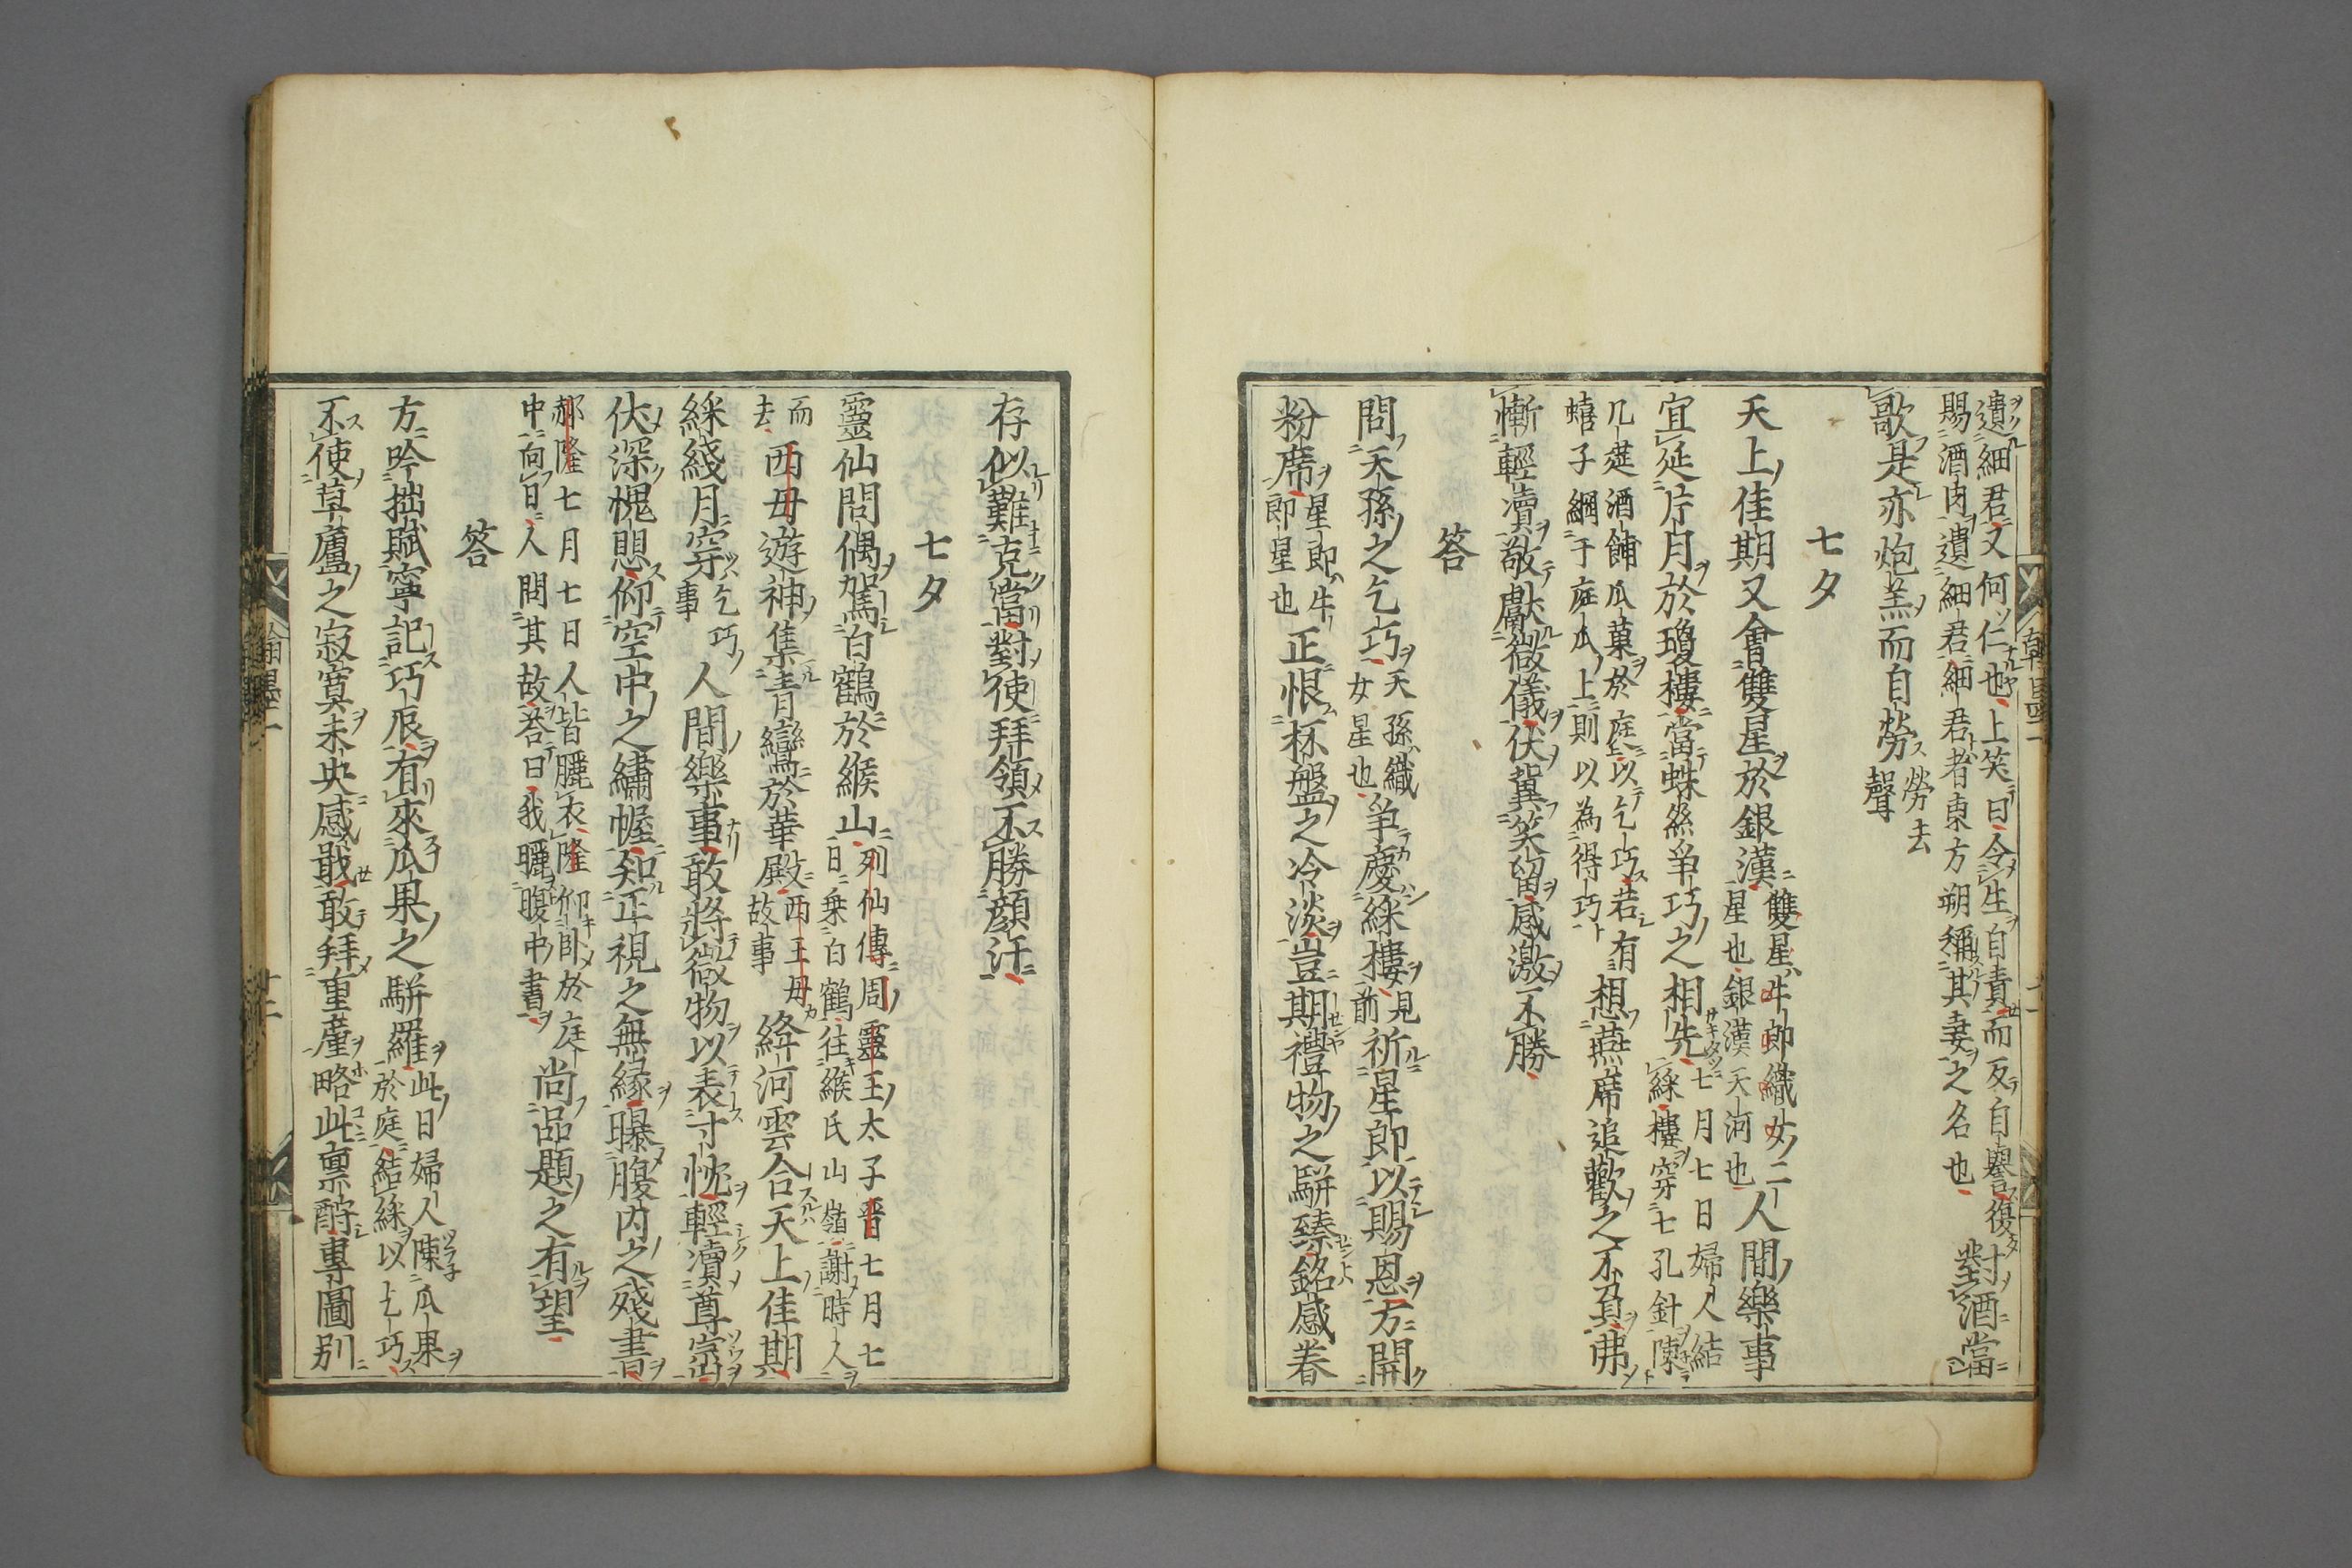 遺細君又何仁也上笑曰令生自責而反自譽復
賜酒肉遺細君細君者東方朔稱其妻之名也
對酒當
歌是亦炮羔而自勞
勞去
聲
七夕
天上佳期又會雙星於銀漢
雙星牛郎織女二
星也銀漢天河也
人間樂事
宜延片月於瓊樓當蛛絲爭巧之相先
七月七日婦人結
綵樓穿七孔針陳
几筵酒餔瓜菓於庭以乞巧若有
蟢子網于庭瓜上則以為得巧
想燕席追歡之不負弗
慚輕瀆敬獻微儀伏冀笑留感激不勝
答
問天孫之乞巧
天孫織
女星也
爭慶綵樓
見
前
祈星郎以賜恩方開
粉席
星郎牛
郎星也
正恨杯盤之冷淡豈期禮物之駢臻銘感眷
存似難克當對使拜領不勝顏汗
七夕
靈仙問偶駕白鶴於緱山
列仙傳周靈王太子晉七月七
日乘白鶴往緱氏山嶺謝時人
而
去
西母遊神集青鸞於華殿
西王母
故事
絳河雲合天上佳期
綵綫月穿
乞巧
事
人間樂事敢將微物以表寸忱輕瀆尊崇
伏深愧恩仰空中之繡幄知正視之無緣曝腹內之殘書
郝隆七月七日人皆曬衣隆仰臥於庭
中向日人問其故荅曰我曬腹中書
尚品題之有望
答
方吟拙賦寧記巧辰有來瓜果之駢羅
此日婦人陳瓜果
於庭結綵以乞巧
不使草蘆之寂寞未央感戢敢拜重產略此稟酧專圖別